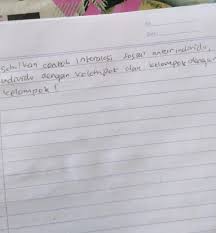 No.
Date:
Sebutkan contoh interaksi sosial antar individu,
individu dengan kelompok dan kelompok dengan
kelompok !